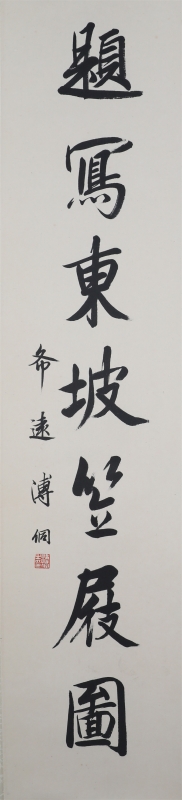 題寫東坡笠屐圖
希遠 溥侗